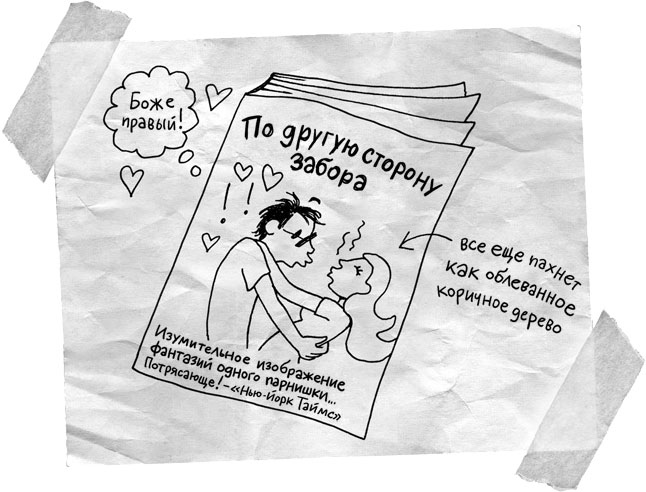 Боже
правый!
По другую сторону
забора
все еще пахнет
как облеванное
коричное дерево
Изумительное изображение
фантазий одного парнишки...
Потрясающе! – «Нью-Йорк Таймс»